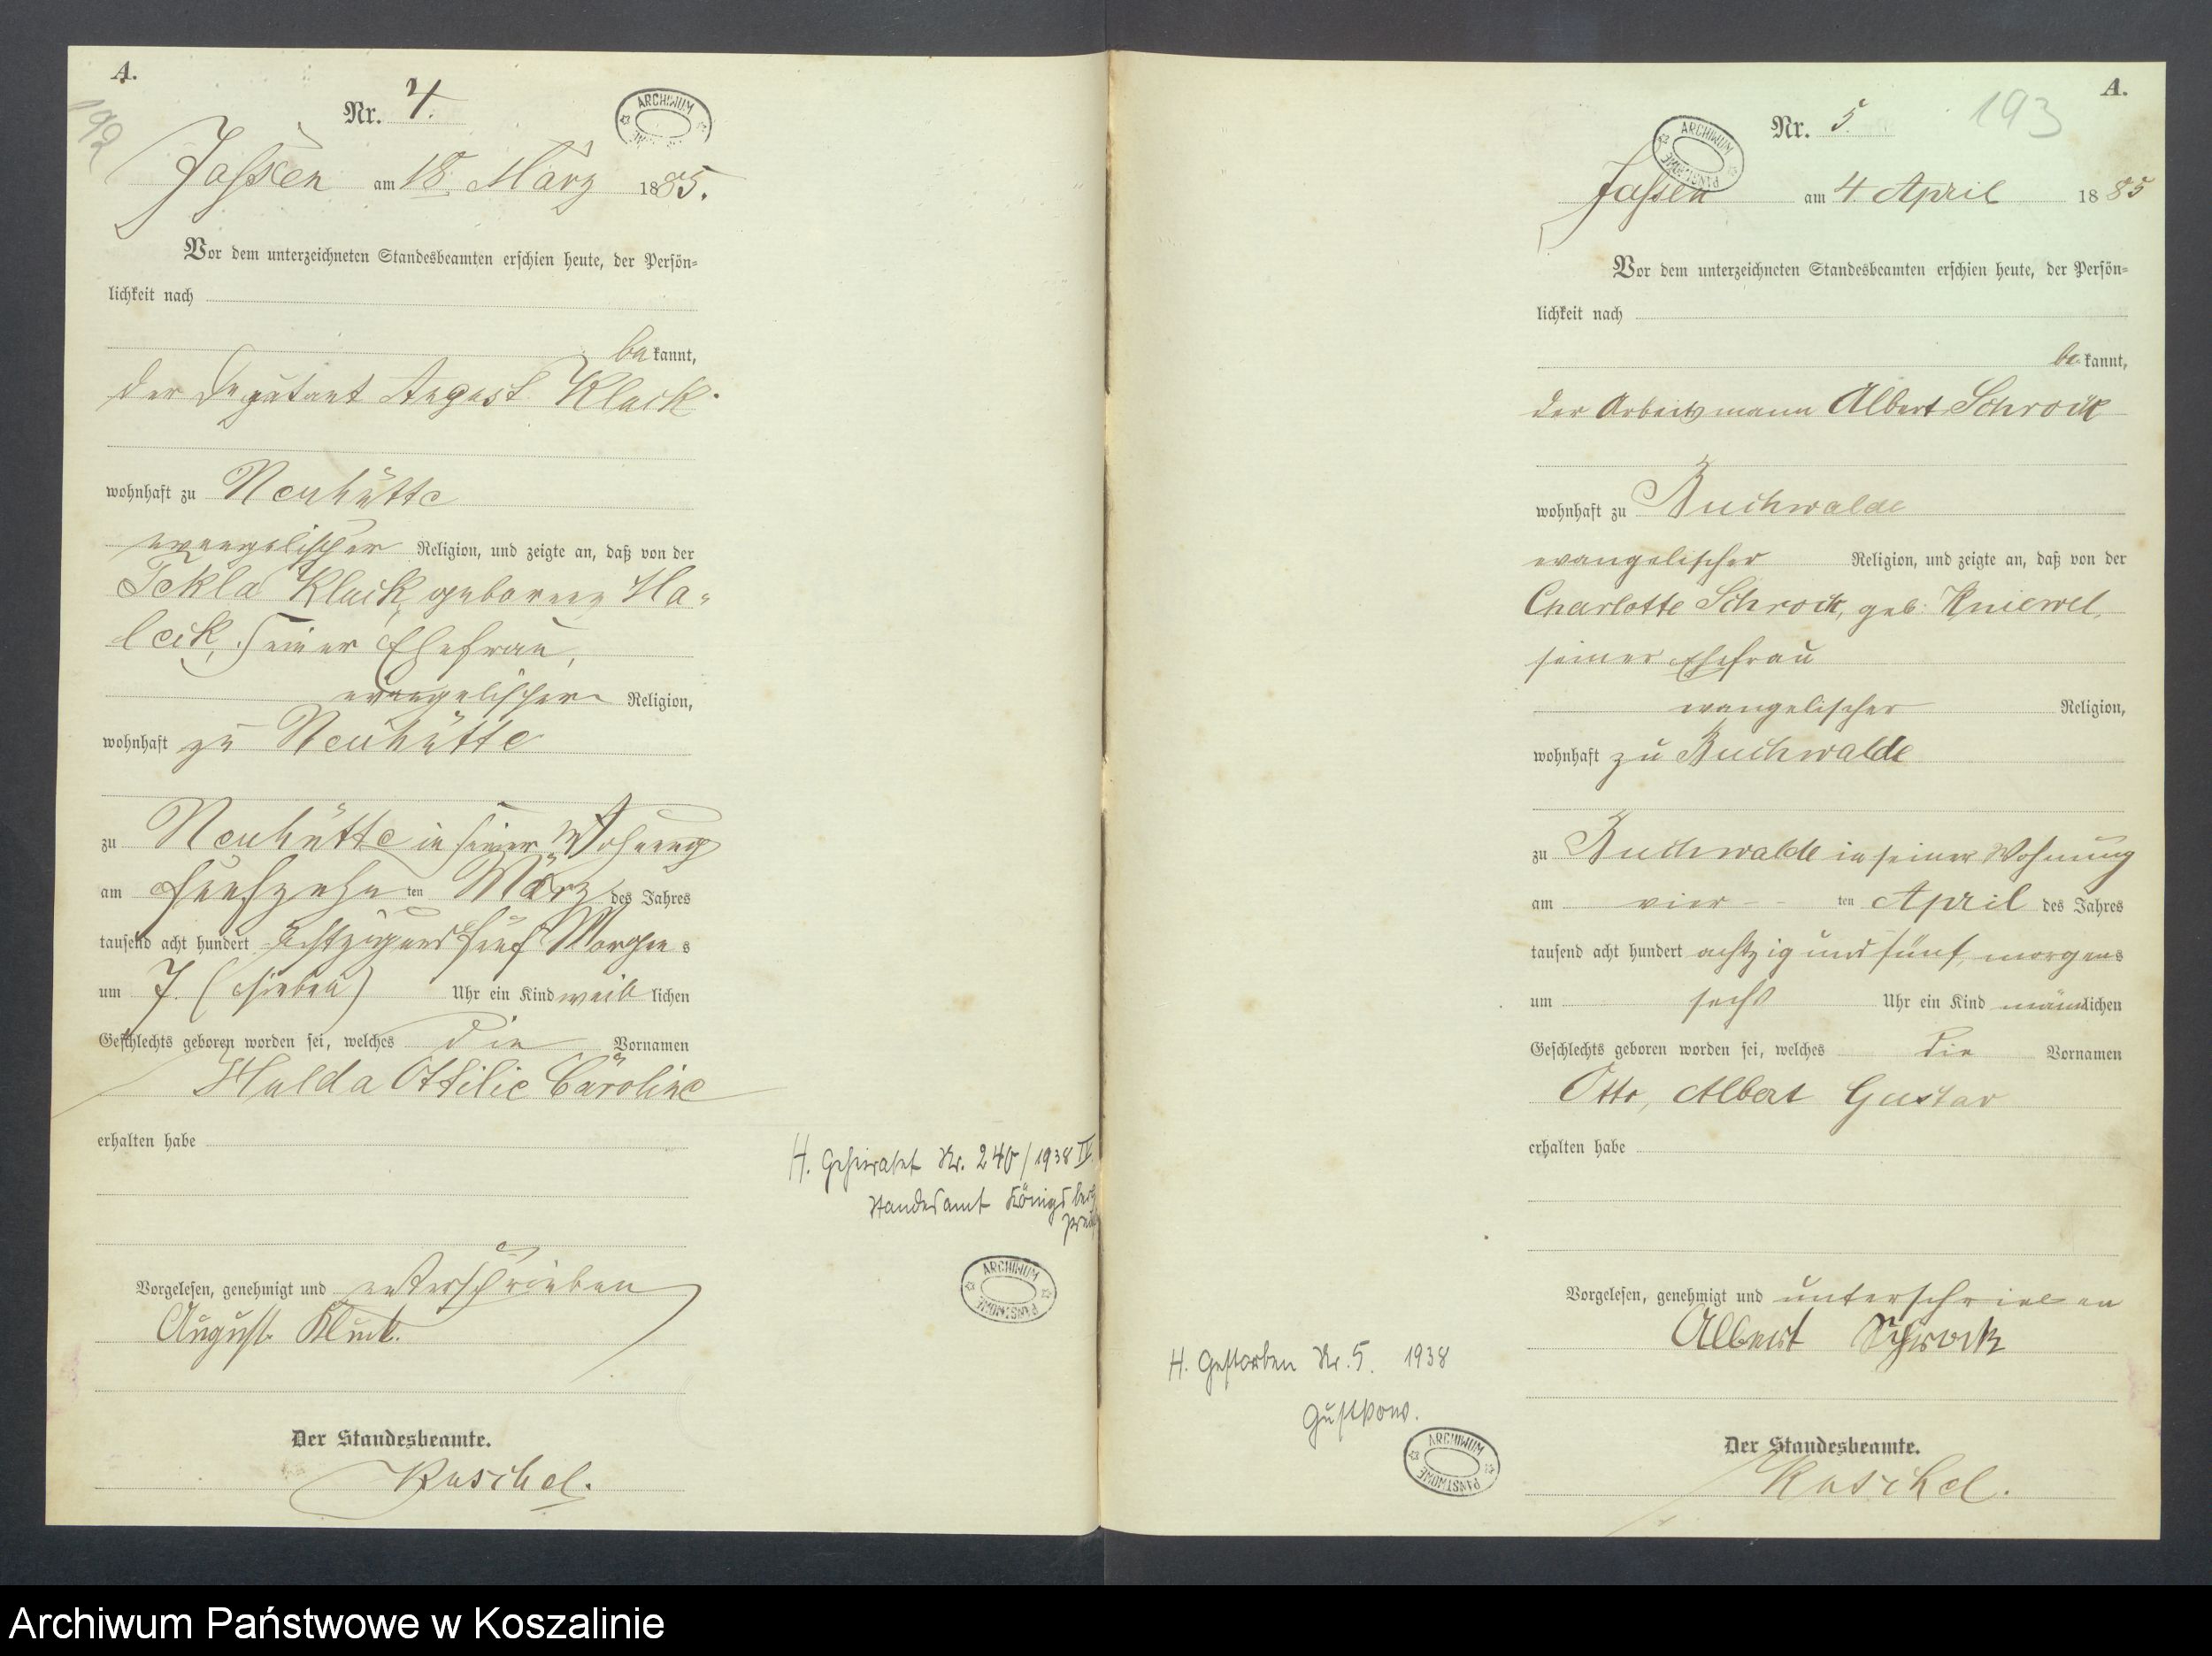 A.
192
Nr. 4.
ARCHIWUM
Jassen am 18. März 1885.
Vor dem unterzeichneten Standesbeamten erschien heute, der Persön=
lichkeit nach
be kannt,
der Deputant August Kluck
wohnhaft zu Neuhütte
evangelischer Religion, und zeigte an, daß von der
Tekla Kluck, geborene Ha-
leik, seiner Ehefrau,
evangelischer Religion,
wohnhaft zu Neuhütte
zu Neuhütte in seiner Wohnung
am fünfzehn ten März des Jahres
tausend acht hundert achtzig und fünf Morgens
um 7. (sieben) Uhr ein Kind weib lichen
Geschlechts geboren worden sei, welches die Vornamen
Hulda Ottilie Caroline
erhalten habe
H. Geheiratet Nr. 240/1938 IV
Standesamt Königsberg
ARCHIWUM PAŃSTWOWE
Vorgelesen, genehmigt und unterschrieben
August Kluck.
Der Standesbeamte.
Kuschel.
A.
193
Nr. 5.
ARCHIWUM PAŃSTWOWE
Jassen am 4 April 1885
Vor dem unterzeichneten Standesbeamten erschien heute, der Persön=
lichkeit nach
be kannt,
der Arbeitsmann Albert Schrock
wohnhaft zu Buchwalde
evangelischer Religion, und zeigte an, daß von der
Charlotte Schrock, geb. Kniewel,
seiner Ehefrau
evangelischer Religion,
wohnhaft zu Buchwalde
zu Buchwalde in seiner Wohnung
am vier ten April des Jahres
tausend acht hundert achtzig und fünf, morgens
um sechs Uhr ein Kind männlichen
Geschlechts geboren worden sei, welches die Vornamen
Otto, Albert Gustav
erhalten habe
Vorgelesen, genehmigt und unterschrieben
Albert Schrock
H. Gestorben Nr. 5. 1938
Gustkow.
ARCHIWUM PAŃSTWOWE
Der Standesbeamte.
Kuschel.
Archiwum Państwowe w Koszalinie